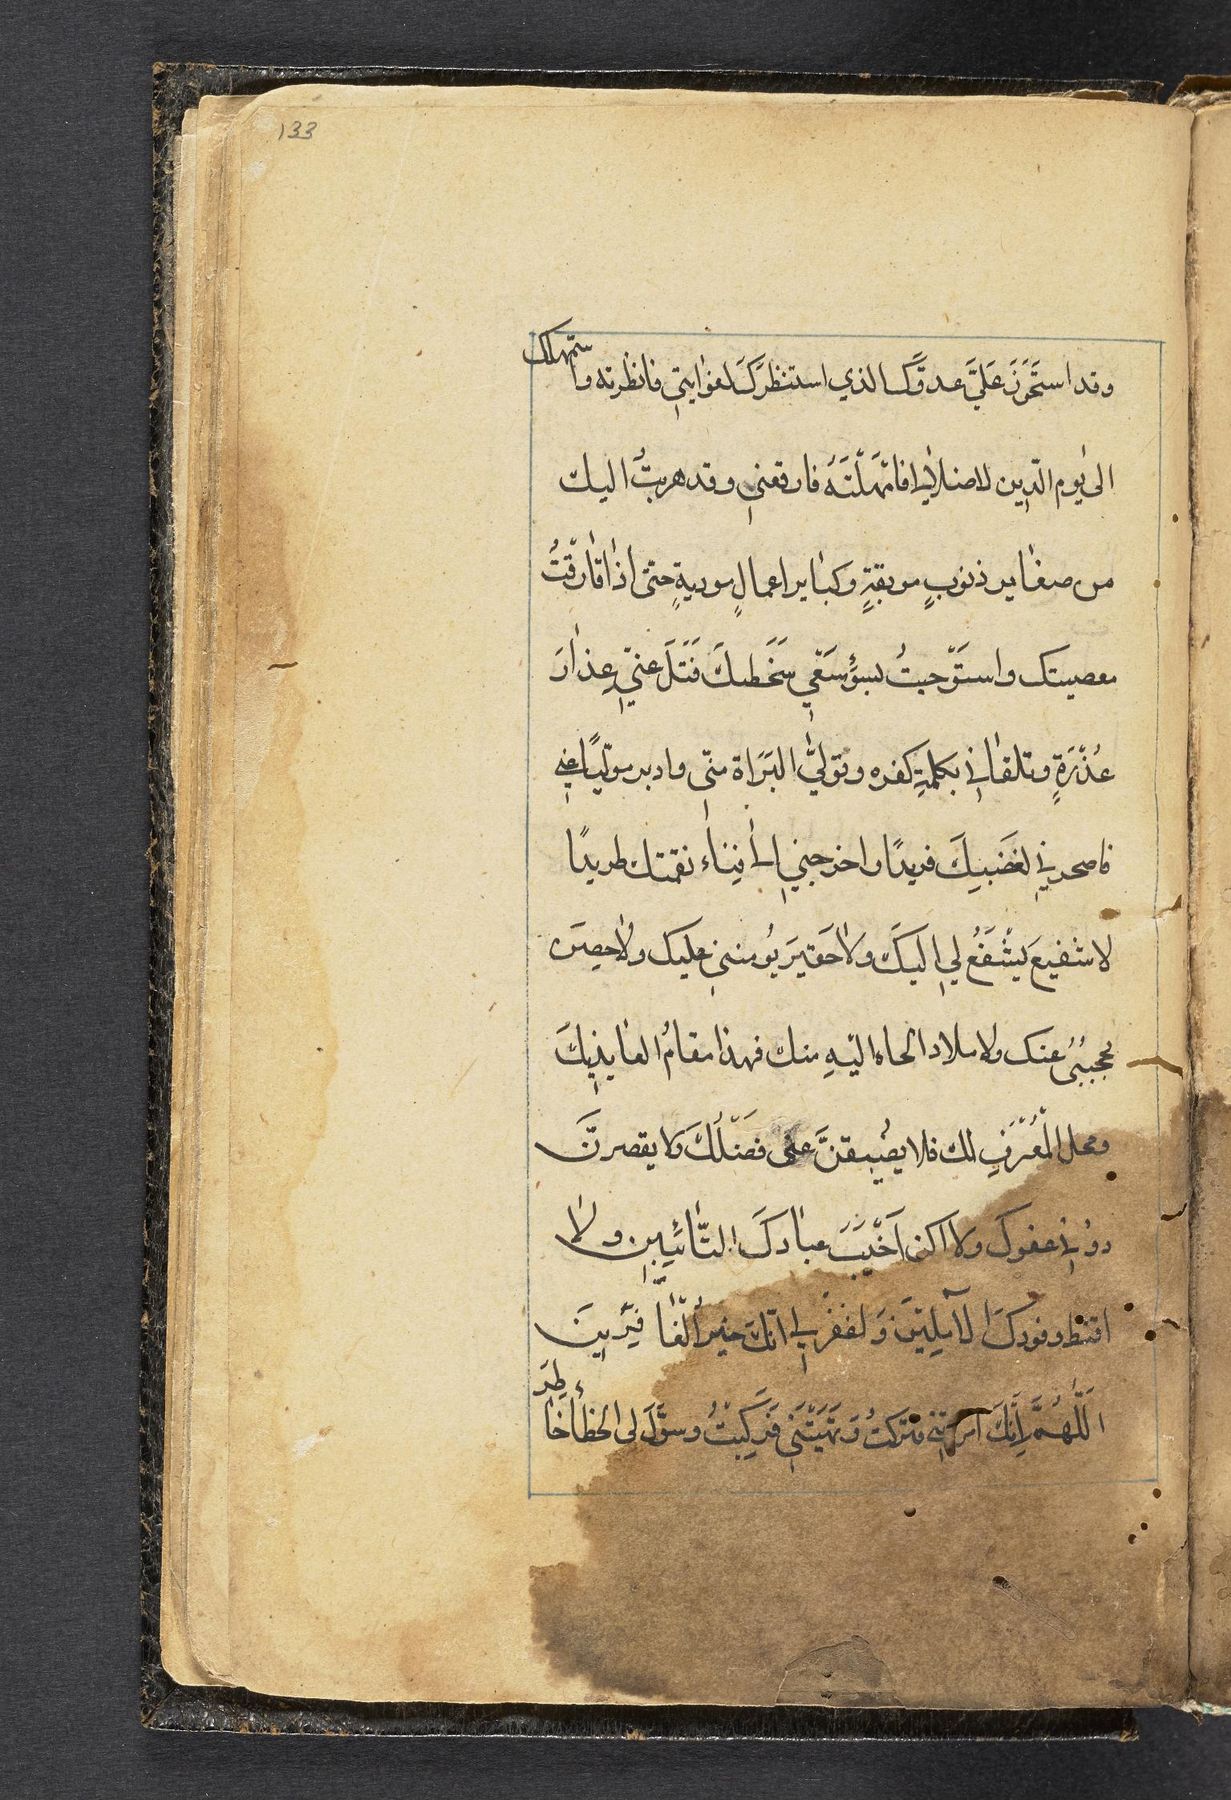 133
وقد استَحْوَذَ عَلَيَّ عدوُّكَ الذي استنظرَكَ لغوَايتي فانظرته واستمهلك
الىٰ يوم الدّين لاضلالي فامْهَلْتَهُ فاوقعني وقد هربتُ اليك
من صغاير ذنوبٍ موبقةٍ وكباير اعمالٍ مرديةٍ حتىٰ اذا قارفتُ
معصيتك واستَوْجبتُ بسوُءِ سَعْيي سَخَطكَ فَتَلَ عنيّ عِذارَ
غُدْرَةٍ وتلقاني بكلمةِ كفره وتوليَّ البَرَاة منّي وادبر موليًّا عني
فاصحرني لغَضَبِكَ فريدًا واخرجني الى فِناء نقمتك طريدًا
لا شفيعَ يَشْفَعُ لي اليكَ ولا خفيرَ يُومنني عليك ولا حِصن
يحجبُني عنك ولا ملاذ الجاء اليْهِ منك فهذا مقامُ العايذِ بِكَ
ومحل الْمُعْتَرِفِ لك فلا يضيقنَّ عني فضْلُكَ ولا يقصرنَّ
دوني عفوك ولا اكن اَخْيَبَ عبادكَ التَّائِبينِ ولا
اقنط وفودكَ الآمِلِينَ وَاغفرْ لي انّكَ خير الْغافِرِينَ
اللّهُمَّ اِنَّكَ امرتني فتركتُ وَنَهَيْتَني فَرَكِبْتُ وسوَّلَ لي الخطاءَ خاطِرَ